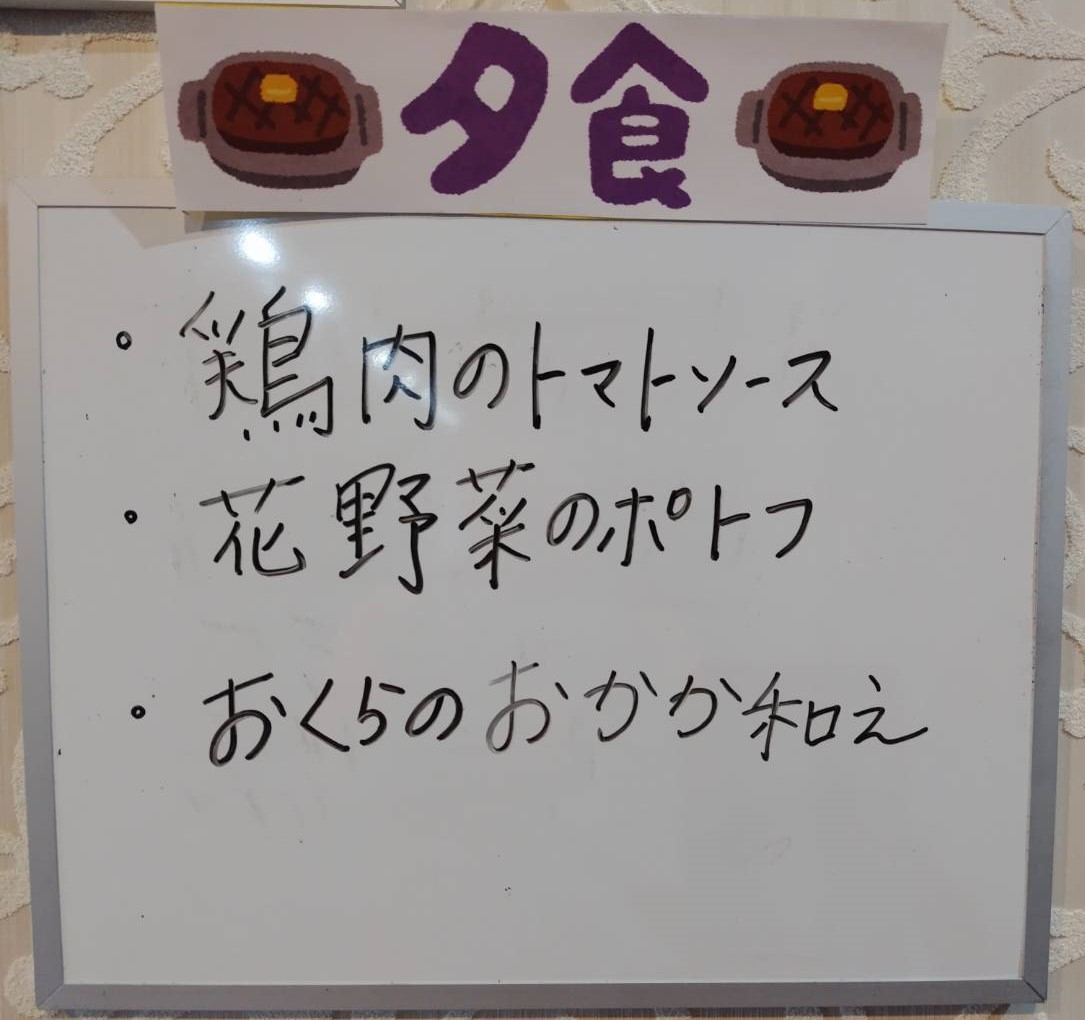 夕食
・鶏肉のトマトソース
・花野菜のポトフ
・おくらのおかか和え